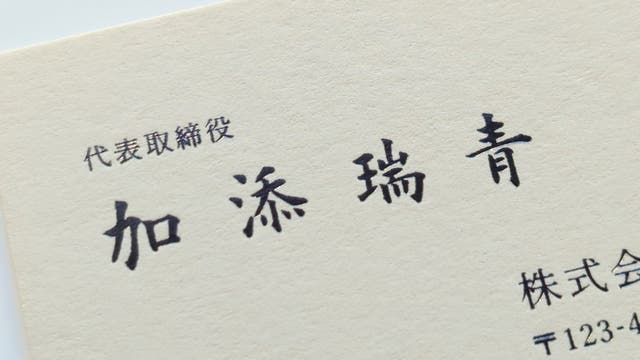 代表取締役
加添瑞青
株式会
〒123-4